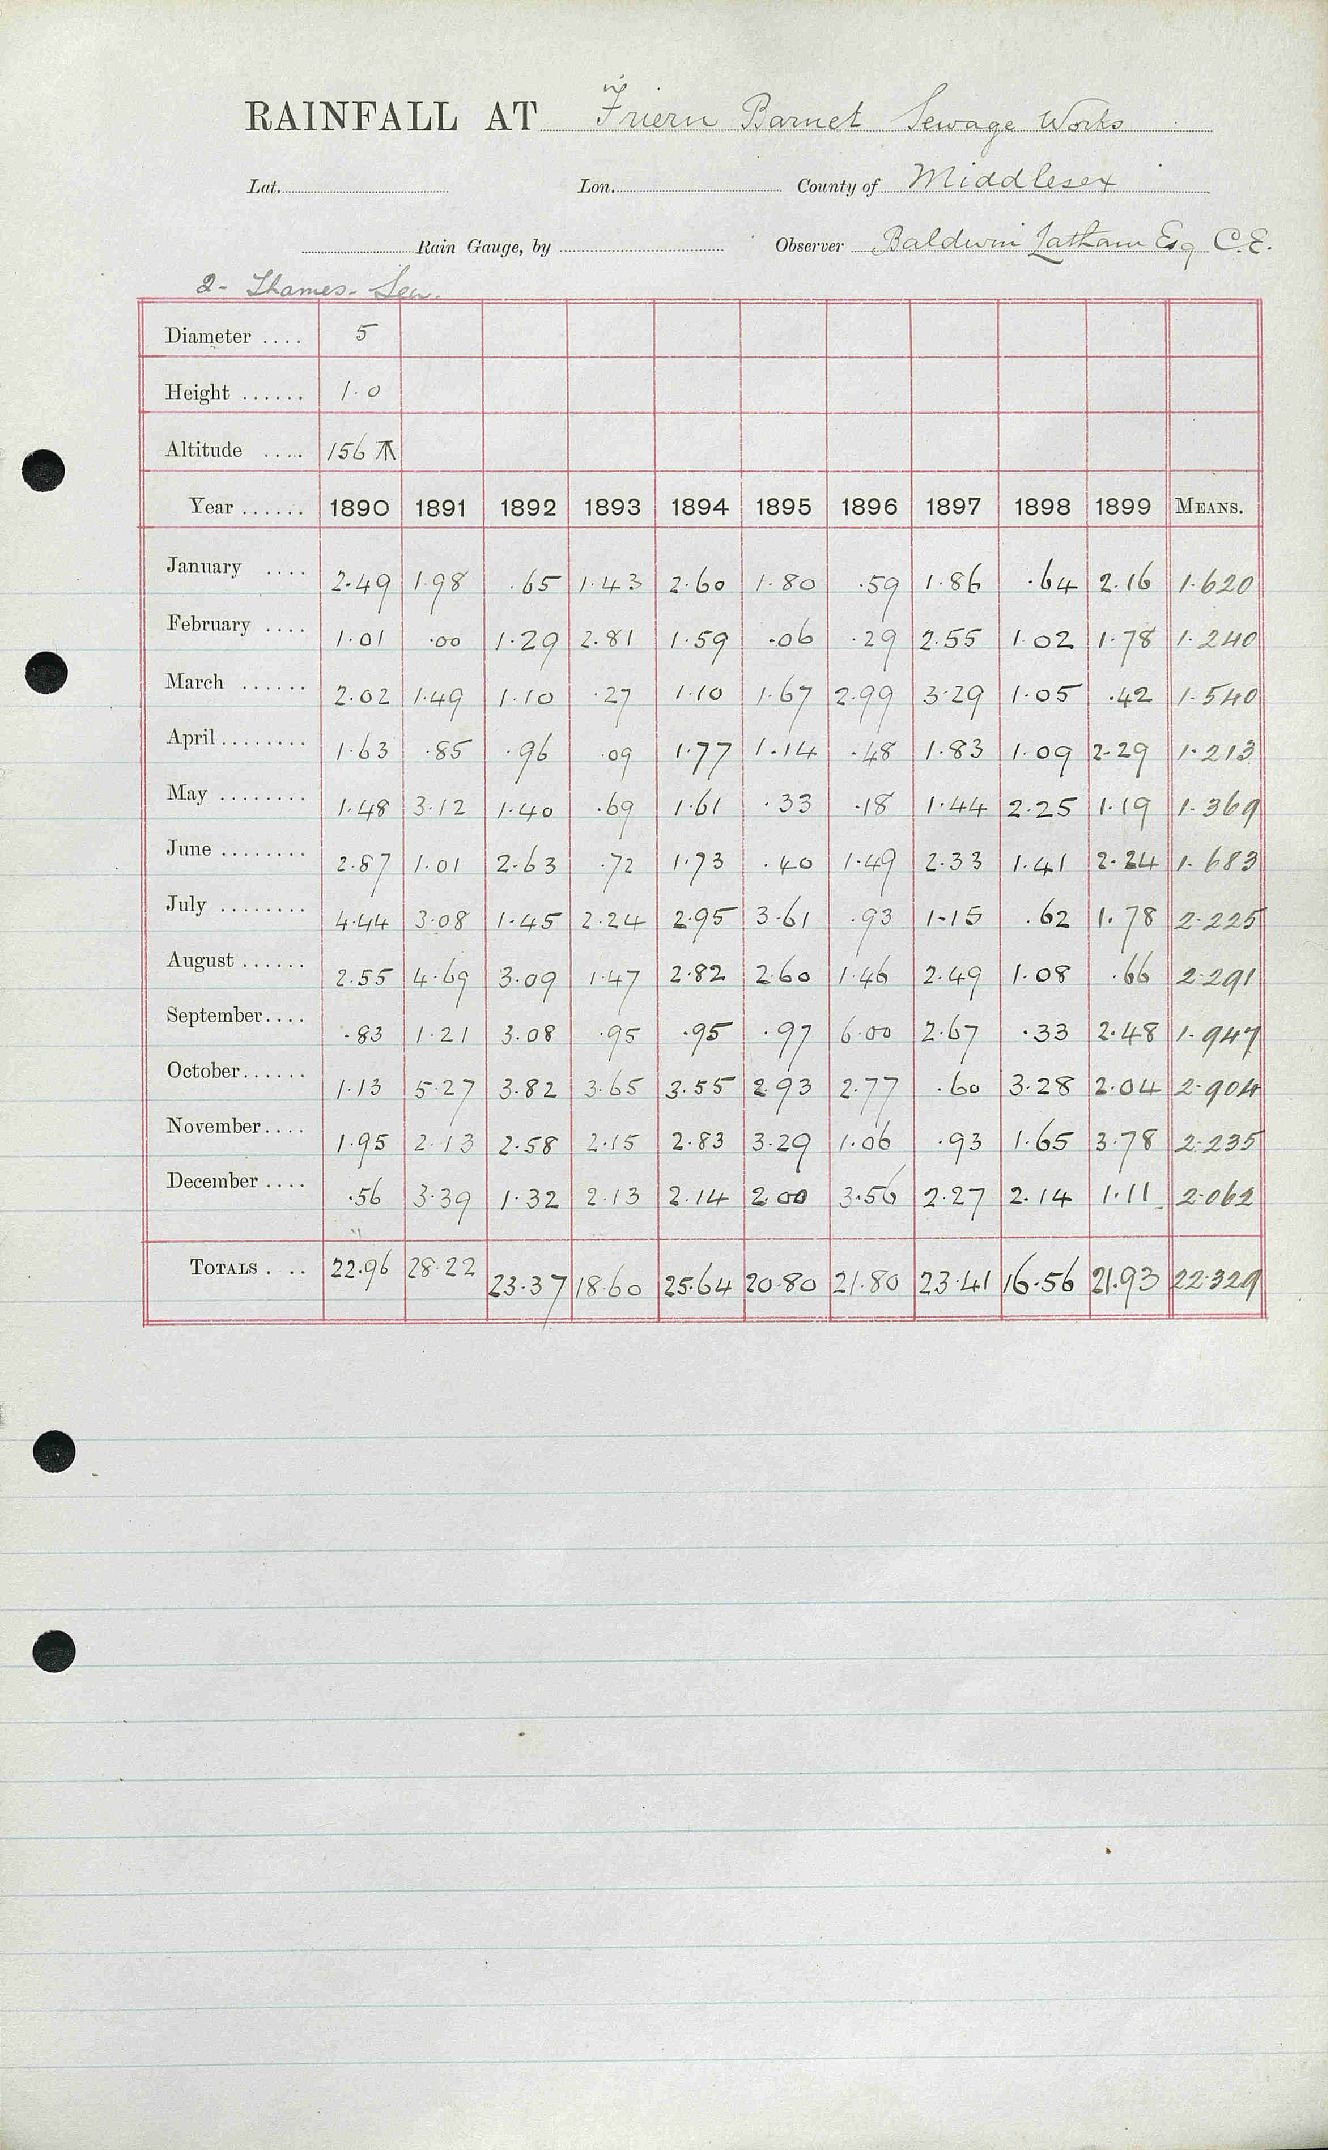 RAINFALL AT Friern Barnet Sewage Works
Lat. Lon. County of Middlesex
Rain Gauge, by Observer Baldwin Latham Esq C.E.
2- Thames-
Diameter .... 5
Height ...... 1.0
Altitude .... 156
Year ...... 1890 1891 1892 1893 1894 1895 1896 1897 1898 1899 MEANS.
January .... 2.49 1.98 .65 1.43 2.60 1.80 .59 1.86 .64 2.16 1.620
February .... 1.01 .00 1.29 2.81 1.59 .06 .29 2.55 1.02 1.78 1.240
March ...... 2.02 1.49 1.10 .27 1.10 1.67 2.99 3.29 1.05 .42 1.540
April ........ 1.63 .85 .96 .09 1.77 1.14 .48 1.83 1.09 2.29 1.213
May ........ 1.48 3.12 1.40 .69 1.61 .33 .18 1.44 2.25 1.19 1.369
June ........ 2.87 1.01 2.63 .72 1.73 .40 1.49 2.33 1.41 2.24 1.683
July ........ 4.44 3.08 1.45 2.24 2.95 3.61 .93 1.15 .62 1.78 2.225
August ...... 2.55 4.69 3.09 1.47 2.82 2.60 1.46 2.49 1.08 .66 2.291
September .... .83 1.21 3.08 .95 .95 .97 6.00 2.67 .33 2.48 1.947
October ...... 1.13 5.27 3.82 3.65 3.55 2.93 2.77 .60 3.28 2.04 2.904
November .... 1.95 2.13 2.58 2.15 2.83 3.29 1.06 .93 1.65 3.78 2.235
December .... .56 3.39 1.32 2.13 2.14 2.00 3.56 2.27 2.14 1.11 2.062
TOTALS . .. 22.96 28.22 23.37 18.60 25.64 20.80 21.80 23.41 16.56 21.93 22.329